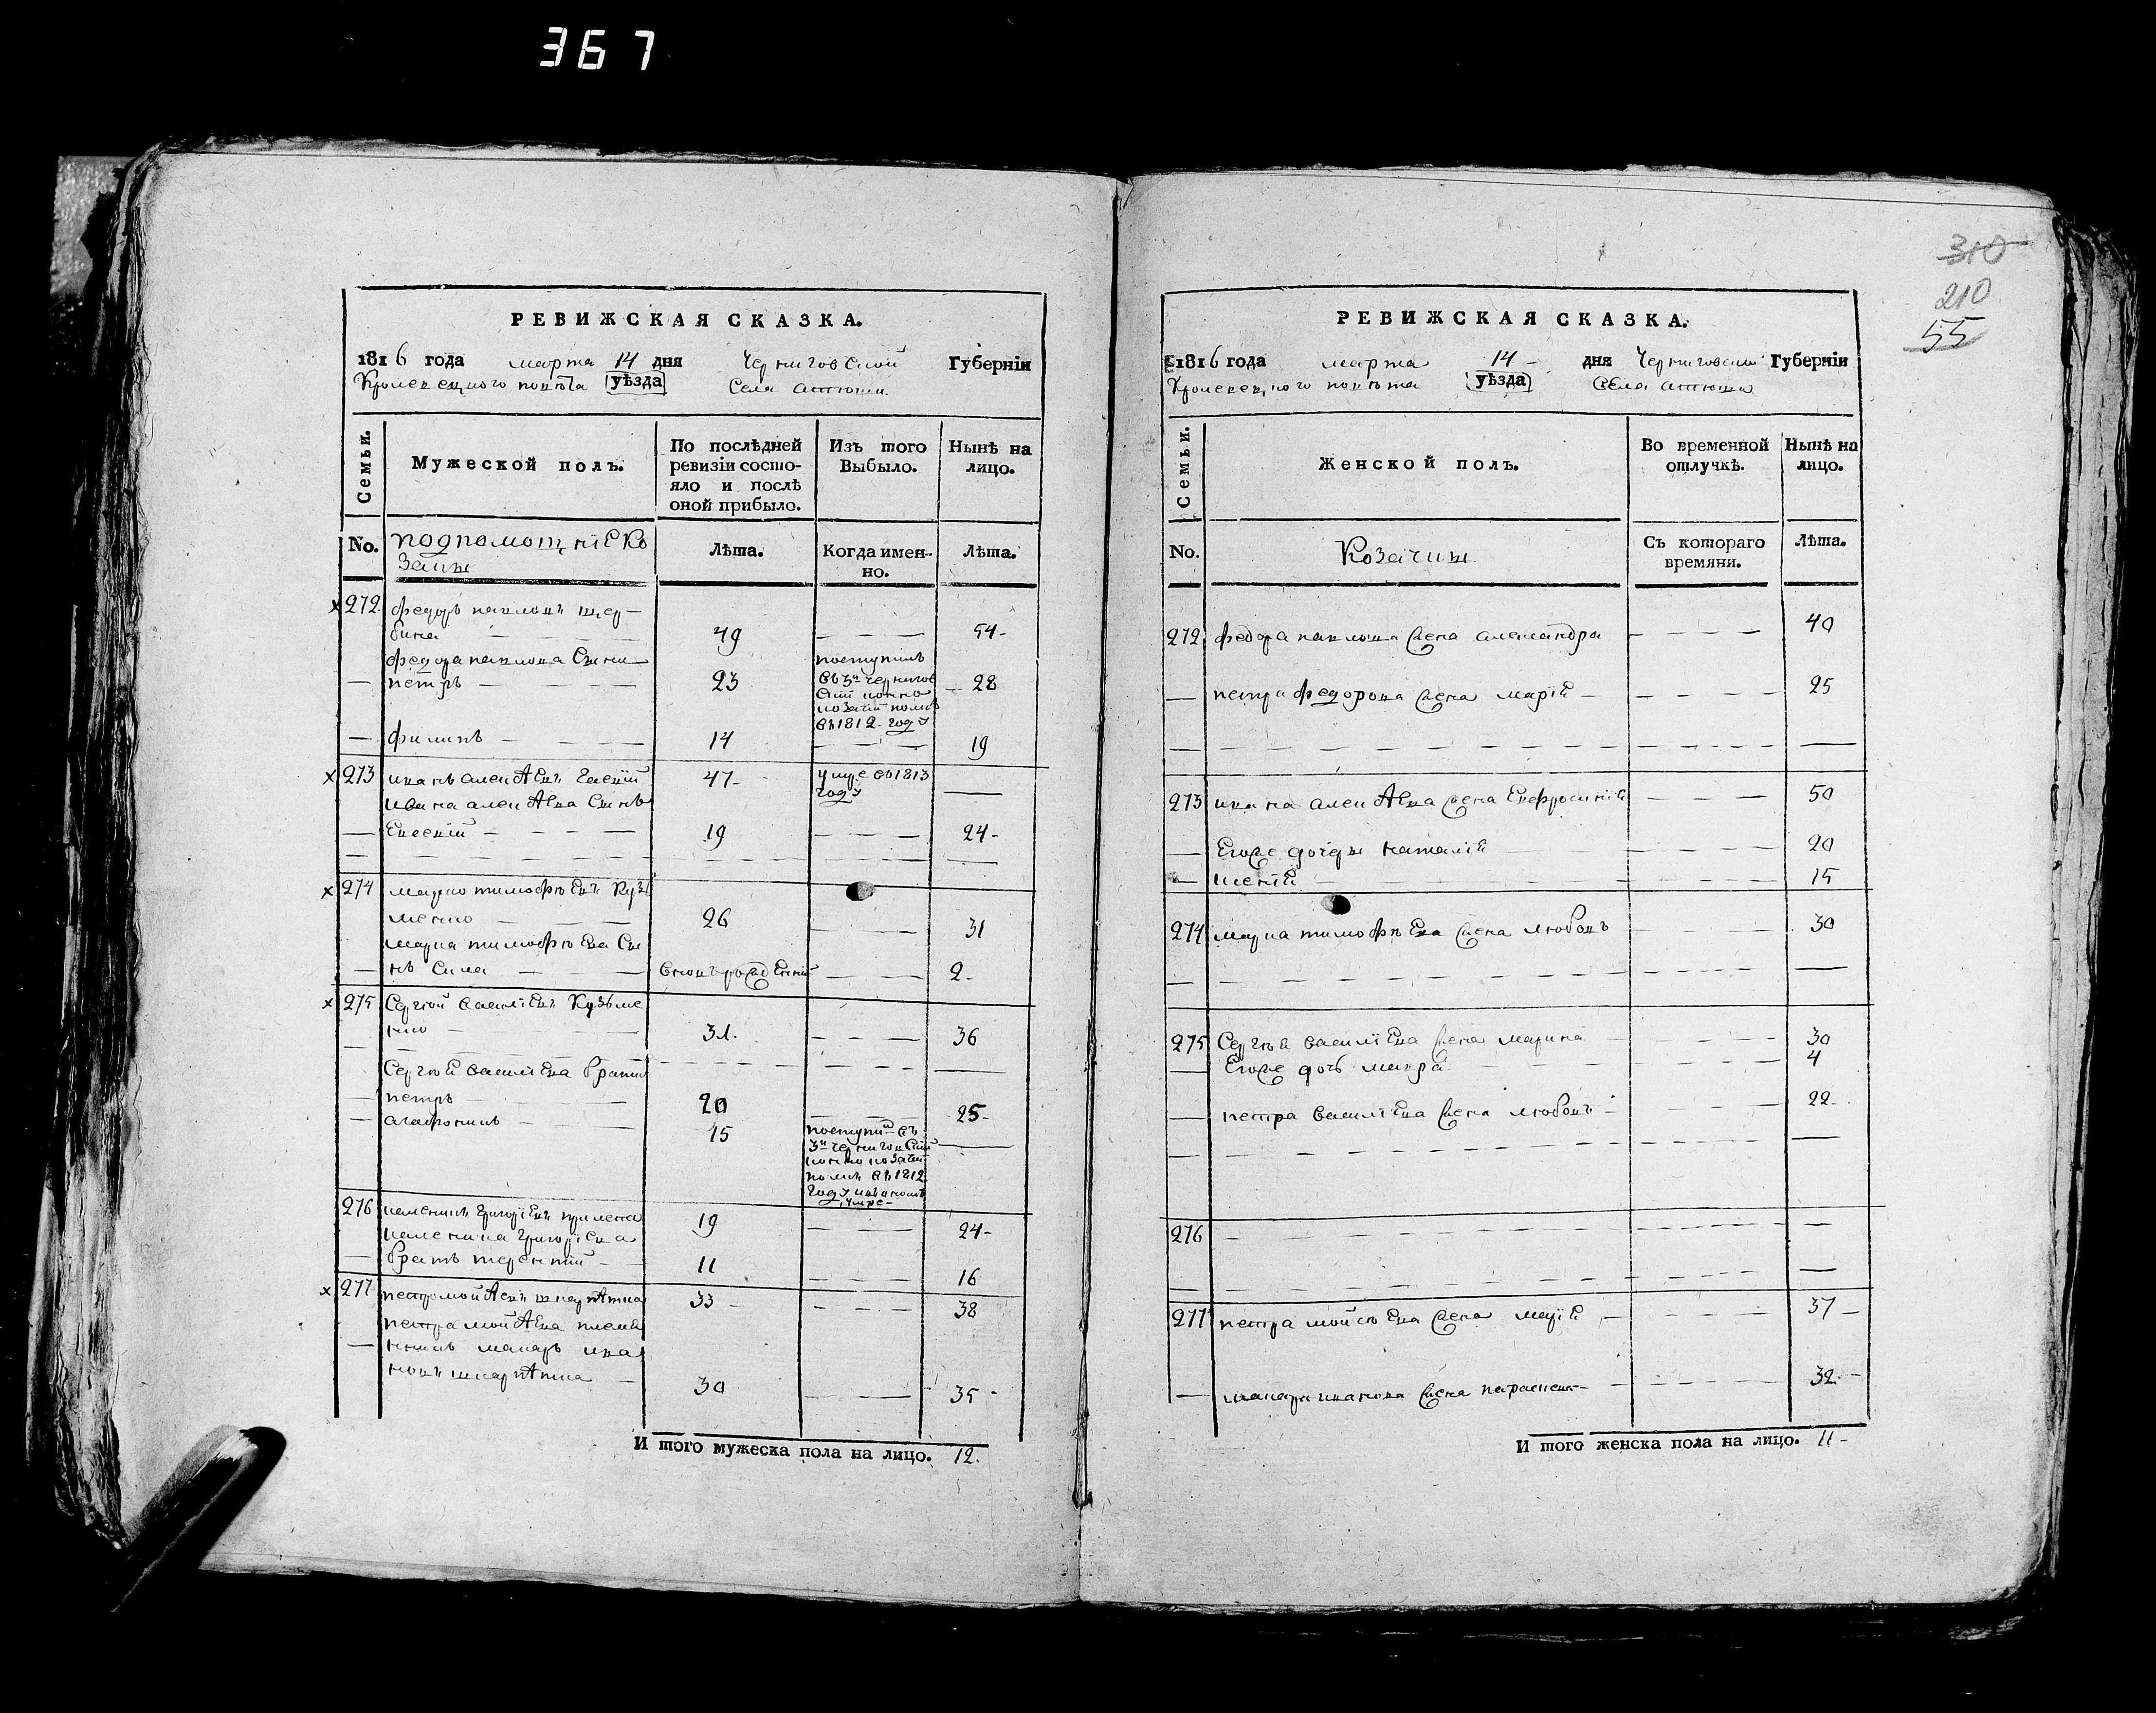 367
РЕВИЖСКАЯ СКАЗКА.
1816 года марта 14 дня Черниговской Губерніи
Кролевецкого повѣта уѣзда Села Атюши
Семьи.
Мужеской полъ.
По послѣдней ревизіи состо-
яло и послѣ
оной прибыло.
Изъ того
Выбыло.
Нынѣ на
лицо.
No.
подпомощніе ко
заки
Лѣта.
Когда имен-
но.
Лѣта.
272 федоръ павловъ щер-
бина 49 54
федора павлова Сыни
петръ 23 поступилъ
въ 3й чернигов
скій конно
козачій полкъ
въ 1812 году 28
филипъ 14 19
273 иванъ алексѣевъ 47 умре въ 1813
году
ивана алексѣева Сынъ
Евсевій 19 24
274 марко тимофѣевъ Кузь
менко 26 31
марка тимофѣева Сы
нъ Сила вновь рожденній 2
275 Сергѣй василіевъ Кузьме
нко 31 36
Сергѣя василіева братья
петръ 20 25
агафонъ 15 поступил въ
3й черниговскій
конно козачій
полкъ въ 1812
году
умре
276 григоріевъ 19 24
григоріева
братъ терентій 11 16
277 петръ мойсѣевъ 33 38
петра мойсѣева племя
нникъ макаръ ива
новъ 30 35
И того мужеска пола на лицо. 12.
310
210
55
РЕВИЖСКАЯ СКАЗКА.
1816 года марта 14 дня Черниговской Губерніи
Кролевецкого повѣта уѣзда Села Атюши
Семьи.
Женской полъ.
Во временной
отлучкѣ.
Нынѣ на
лицо.
No.
Козачки
Съ котораго
времяни.
Лѣта.
272 федора павлова жена александра 40
петра федорова жена марія 25
273 ивана алексѣева жена Евфросинія 50
Егоже дочери наталія 20
15
274 марка тимофѣева жена любовъ 30
275 Сергѣя василіева жена марина 30
Егоже дочь мавра 4
петра василіева жена любовъ 22
276
277 петра мойсѣева жена марія 37
макара иванова жена параскева 32
И того женска пола на лицо. 11